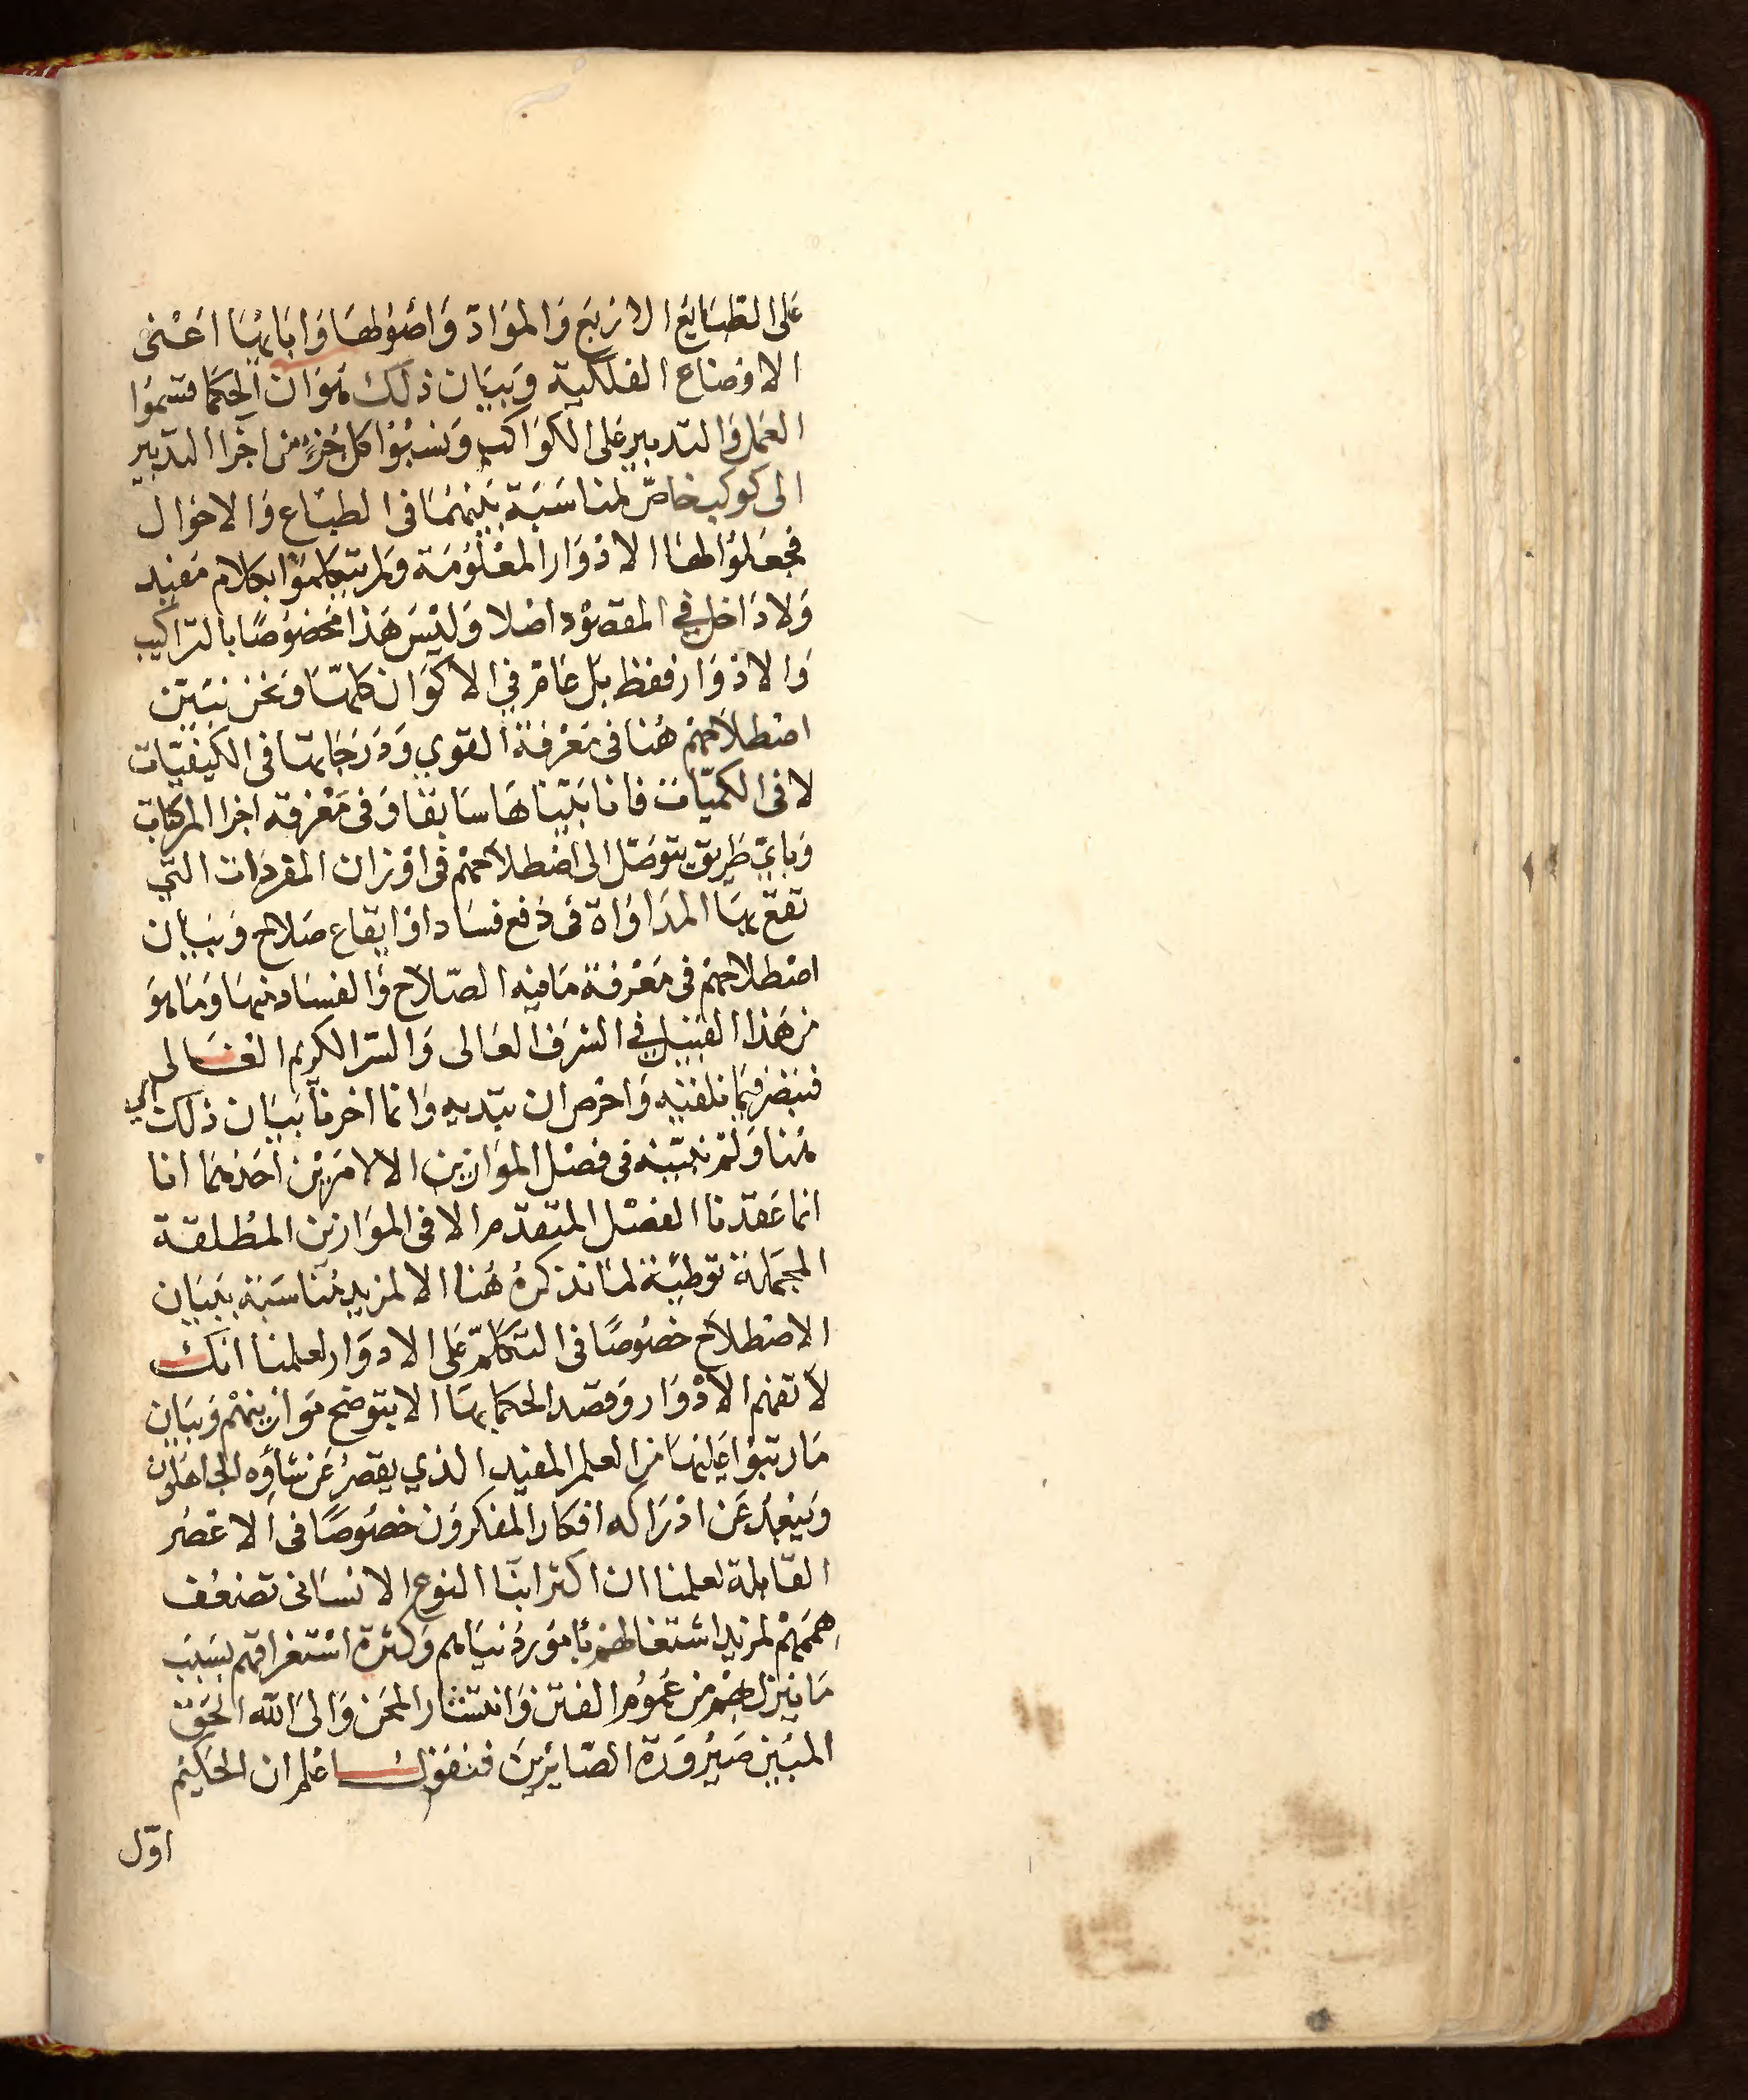 على الطبايع الاربع والمواد واصولها وابايها اعنى
الاوضاع الفلكية وبيان ذلك هو ان الحكما قسموا
العمل والتدبير على الكواكب ونسبوا كل جزء من اجزا التدبير
الى كوكب خاص لمناسبة بينهما فى الطباع والاحوال
فجعلوا لها الادوار المعلومة ولم يتكلموا بكلام مفيد
ولا داخل في المقصود اصلا وليس هذا مخصوصًا بالتراكيب
والادوار فقط بل عام في الاكوان كلها ونحن نبين
اصطلاحهم هنا فى معرفة القوي ودرجاتها فى الكيفيّات
لا فى الكميّات فانا بيّناها سابقا وفى معرفة اجزا المركبات
وبايّ طريق يتوصّل الى اصطلاحهم فى اوزان المفردات التي
تقع بها المداواة فى دفع فساد او ايقاع صلاح وبيان
اصطلاحهم فى معرفة ما فيه الصّلاح والفساد منها وما هو
من هذا القبيل في الشرف العالى والسّر الكريم الغالى
فتبصّر فيما نلقيه واحرص ان تبديه وانما اخرنا بيان ذلك الي
هنا ولم نبيّنه فى فصل الموازين الا لامرين احدهما انا
انما عقدنا الفصل المتقدم الا فى الموازين المطلقة
المجملة توطئة لما نذكره هنا الا لمزيد مناسبة ببيان
الاصطلاح خصوصًا فى التكلّم على الادوار لعلمنا انك
لا تفهم الادوار وقصد الحكما بها الا بتوضح موازينهم وبيان
ما رتبوا عليها من العلم المفيد الذي يقصر عن شاؤه الجاهلون
ويبعد عن ادراكه افكار المفكرون خصوصًا فى الاعصر
القابلة لعلمنا ان اكثر ابنا النوع الانسانى تضعف
هممهم لمزيد اشتغالهم بامور دنياهم وكثرة استغراقهم بسبب
ما ينزل بهم من عموم الفتن وانتشار المحن والى الله الحق
المبين صيرورة الصّايرين فنقول اعلم ان الحكيم
اوّل